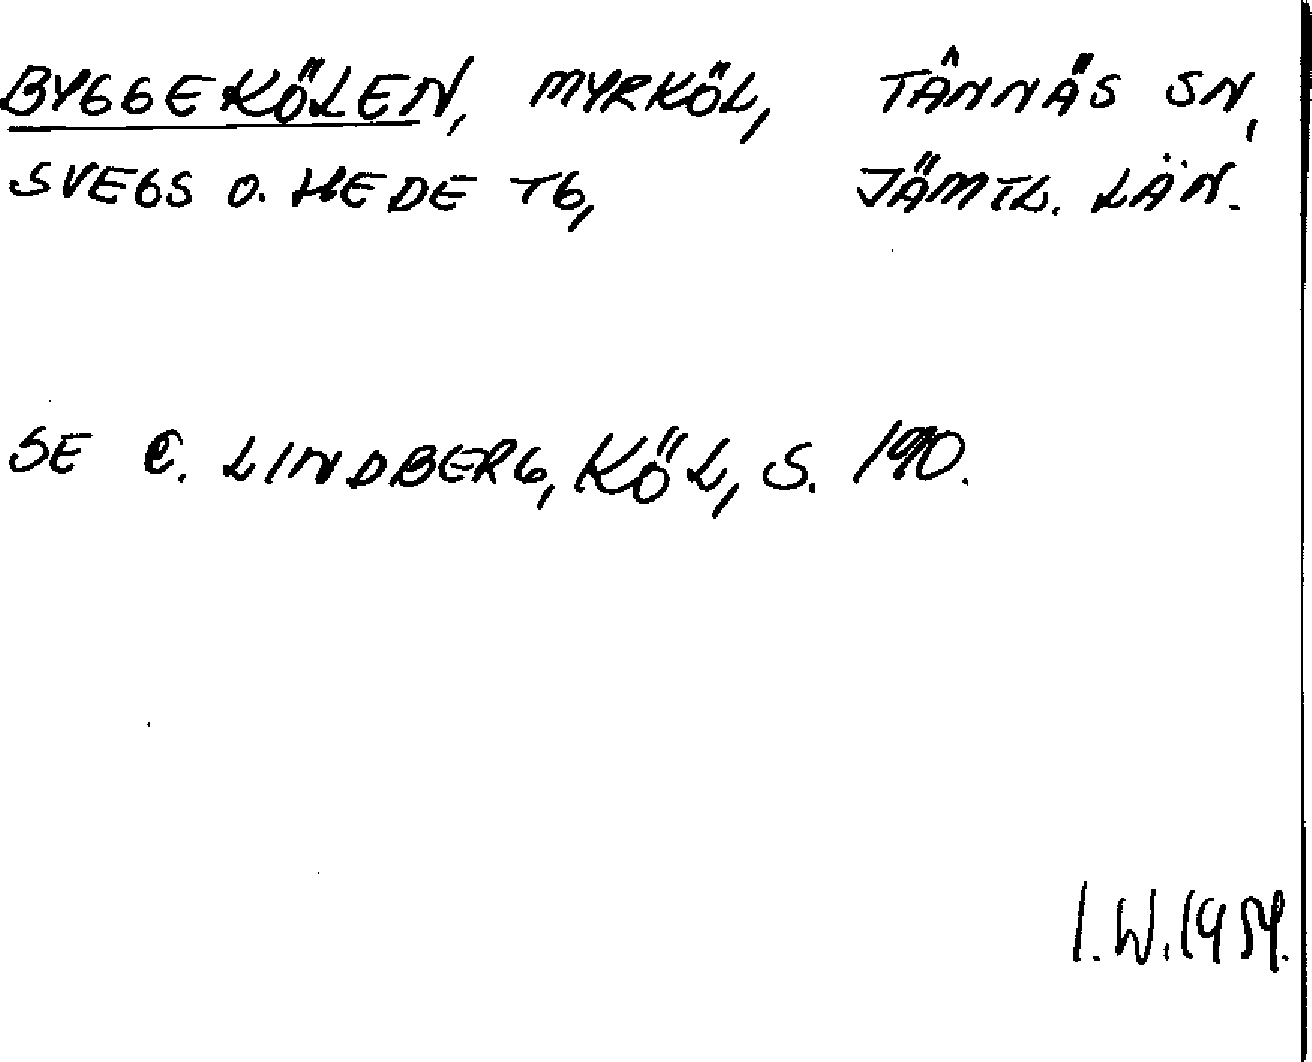 BYGGEKÖLEN, MYRKÖL, TÄNNÄS SN,
SVEGS O. HEDE TG, JÄMTL. LÄN.
SE C. LINDBERG, KÖL, S. 190.
I.W. 1959.